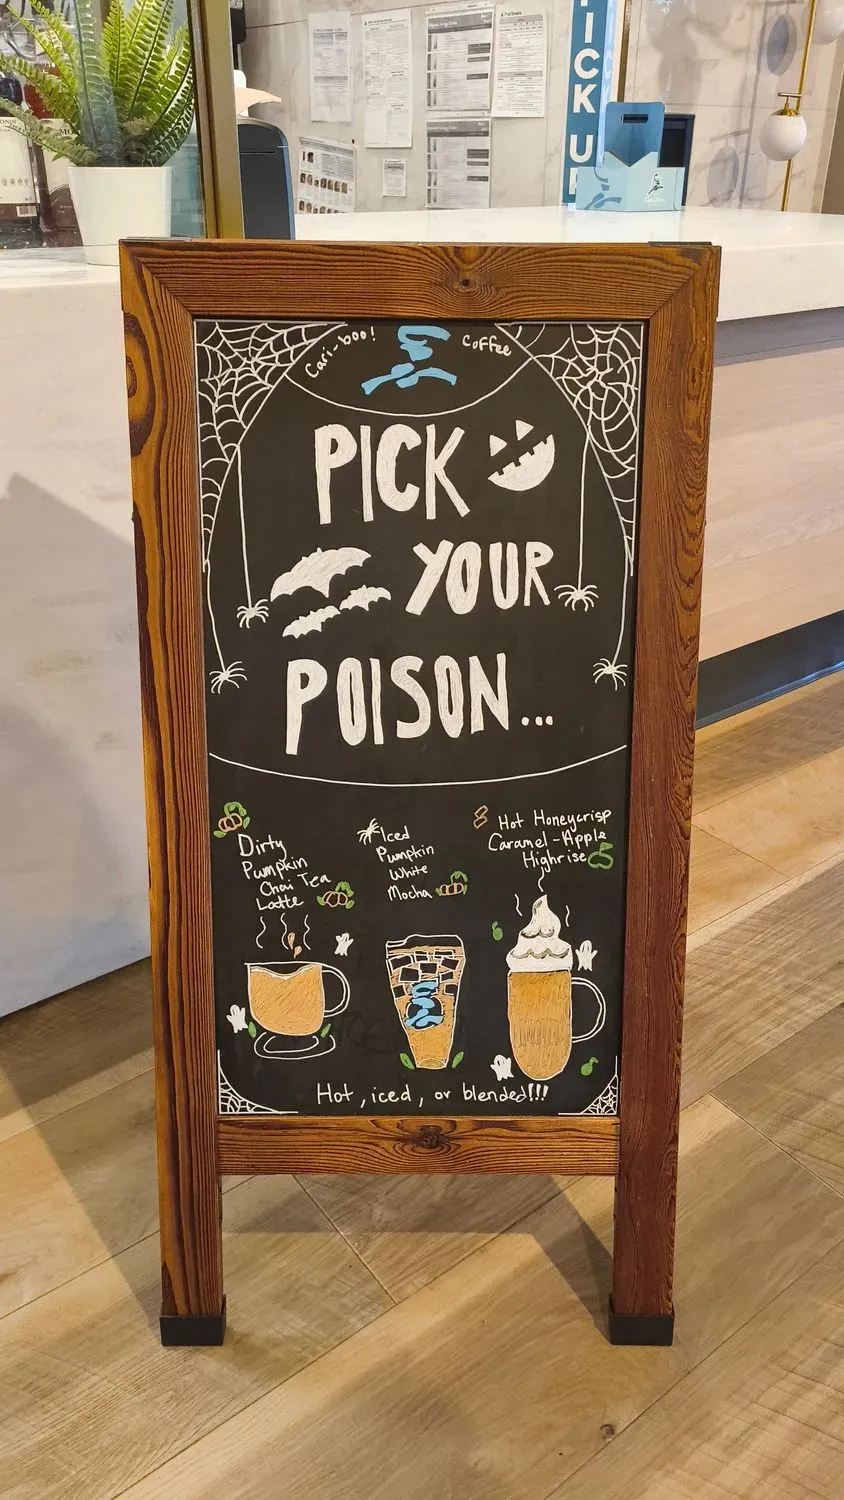 PICK UP
Cari-boo! Coffee
PICK
YOUR
POISON...
Dirty
Pumpkin
Chai Tea
Latte
Iced
Pumpkin
White
Mocha
Hot Honeycrisp
Caramel-Apple
Highrise
Hot, iced, or blended!!!